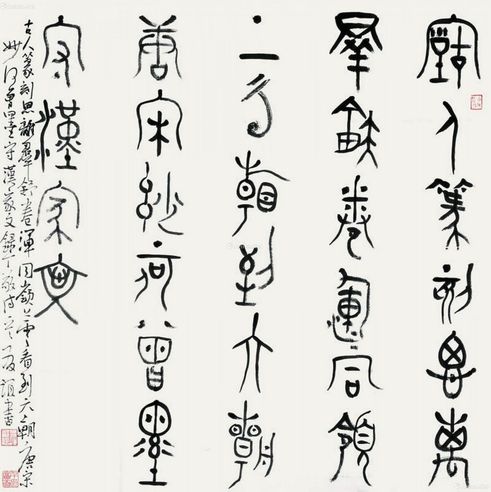 古人篆刻思離
群舒卷渾同嶺
上雲看到六朝
唐宋妙何曾墨
守漢家文
古人篆刻思離群舒卷渾同嶺上雲看到六朝唐宋
妙何曾墨守漢家文錄丁敬詩書